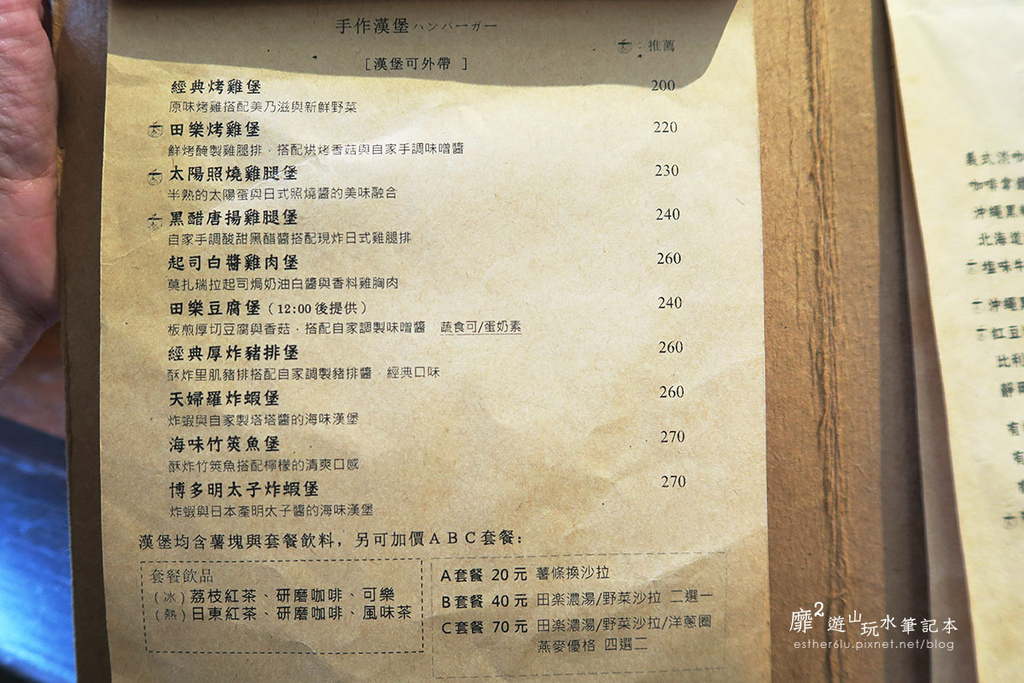 手作漢堡ハンバーガー
：推薦
［漢堡可外帶 ］
經典烤雞堡 200
原味烤雞搭配美乃滋與新鮮野菜
田樂烤雞堡 220
鮮烤醃製雞腿排．搭配烘烤香菇與自家手調味噌醬
太陽照燒雞腿堡 230
半熟的太陽蛋與日式照燒醬的美味融合
黑醋唐揚雞腿堡 240
自家手調酸甜黑醋醬搭配現炸日式雞腿排
起司白醬雞肉堡 260
莫扎瑞拉起司焗奶油白醬與香料雞胸肉
田樂豆腐堡（12:00後提供） 240
板煎厚切豆腐與香菇．搭配自家調製味噌醬 蔬食可/蛋奶素
經典厚炸豬排堡 260
酥炸里肌豬排搭配自家調製豬排醬．經典口味
天婦羅炸蝦堡 260
炸蝦與自家製塔塔醬的海味漢堡
海味竹筴魚堡 270
酥炸竹筴魚搭配檸檬的清爽口感
博多明太子炸蝦堡 270
炸蝦與日本產明太子醬的海味漢堡
漢堡均含薯塊與套餐飲料，另可加價ＡＢＣ套餐：
套餐飲品
（冰）荔枝紅茶、研磨咖啡、可樂
（熱）日東紅茶、研磨咖啡、風味茶
A套餐 20元 薯條換沙拉
B套餐 40元 田樂濃湯/野菜沙拉 二選一
C套餐 70元 田樂濃湯/野菜沙拉/洋蔥圈
燕麥優格 四選二
義式濃咖
咖啡拿鐵
沖繩黑
北海道
塩味牛
沖繩黑
紅豆
比利
靜岡
有
有
靡²遊山玩水筆記本
esther8lu.pixnet.net/blog